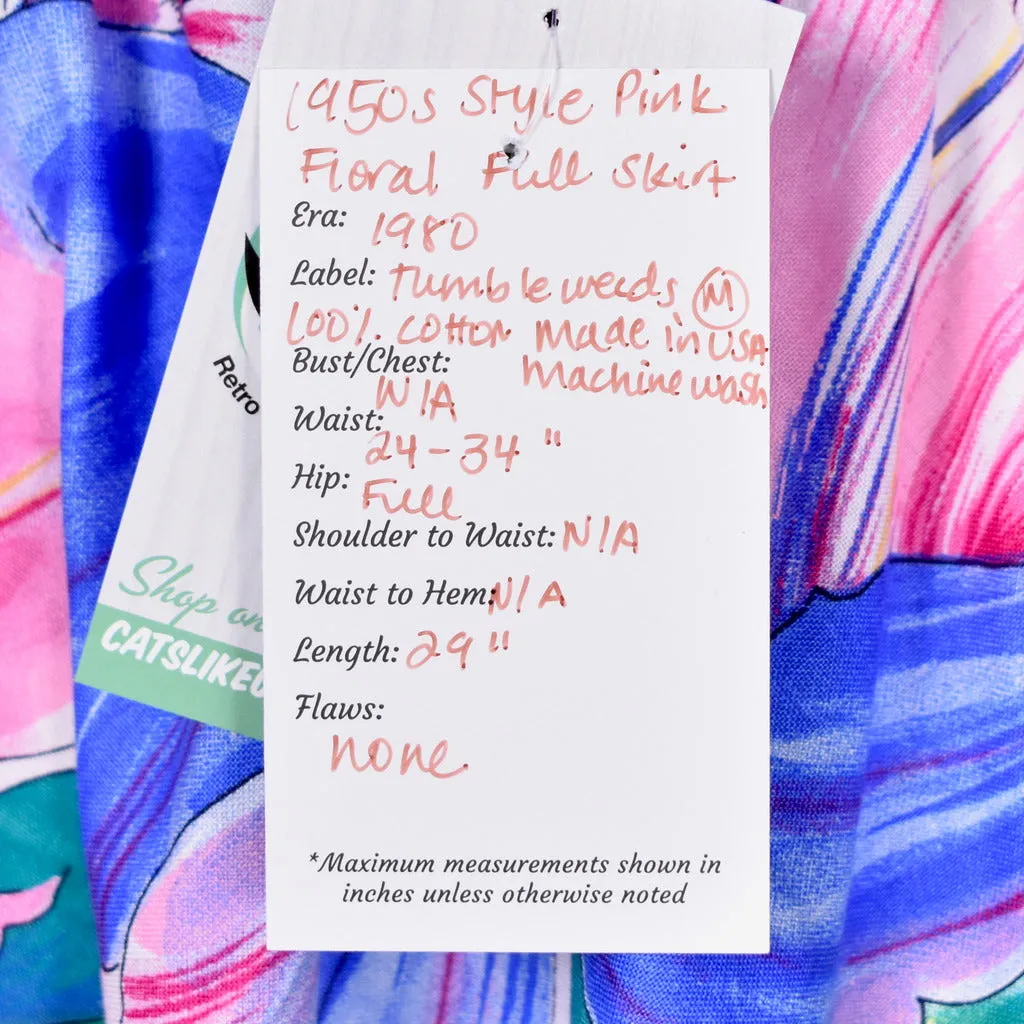 1950s Style Pink
Floral Full Skirt
Era: 1980
Label: Tumbleweeds M
100% cotton made in USA
Machine wash
Bust/Chest: N/A
Waist: 24-34"
Hip: Full
Shoulder to Waist: N/A
Waist to Hem: N/A
Length: 29"
Flaws:
none
*Maximum measurements shown in
inches unless otherwise noted
Retro
Shop on
CATSLIKEU